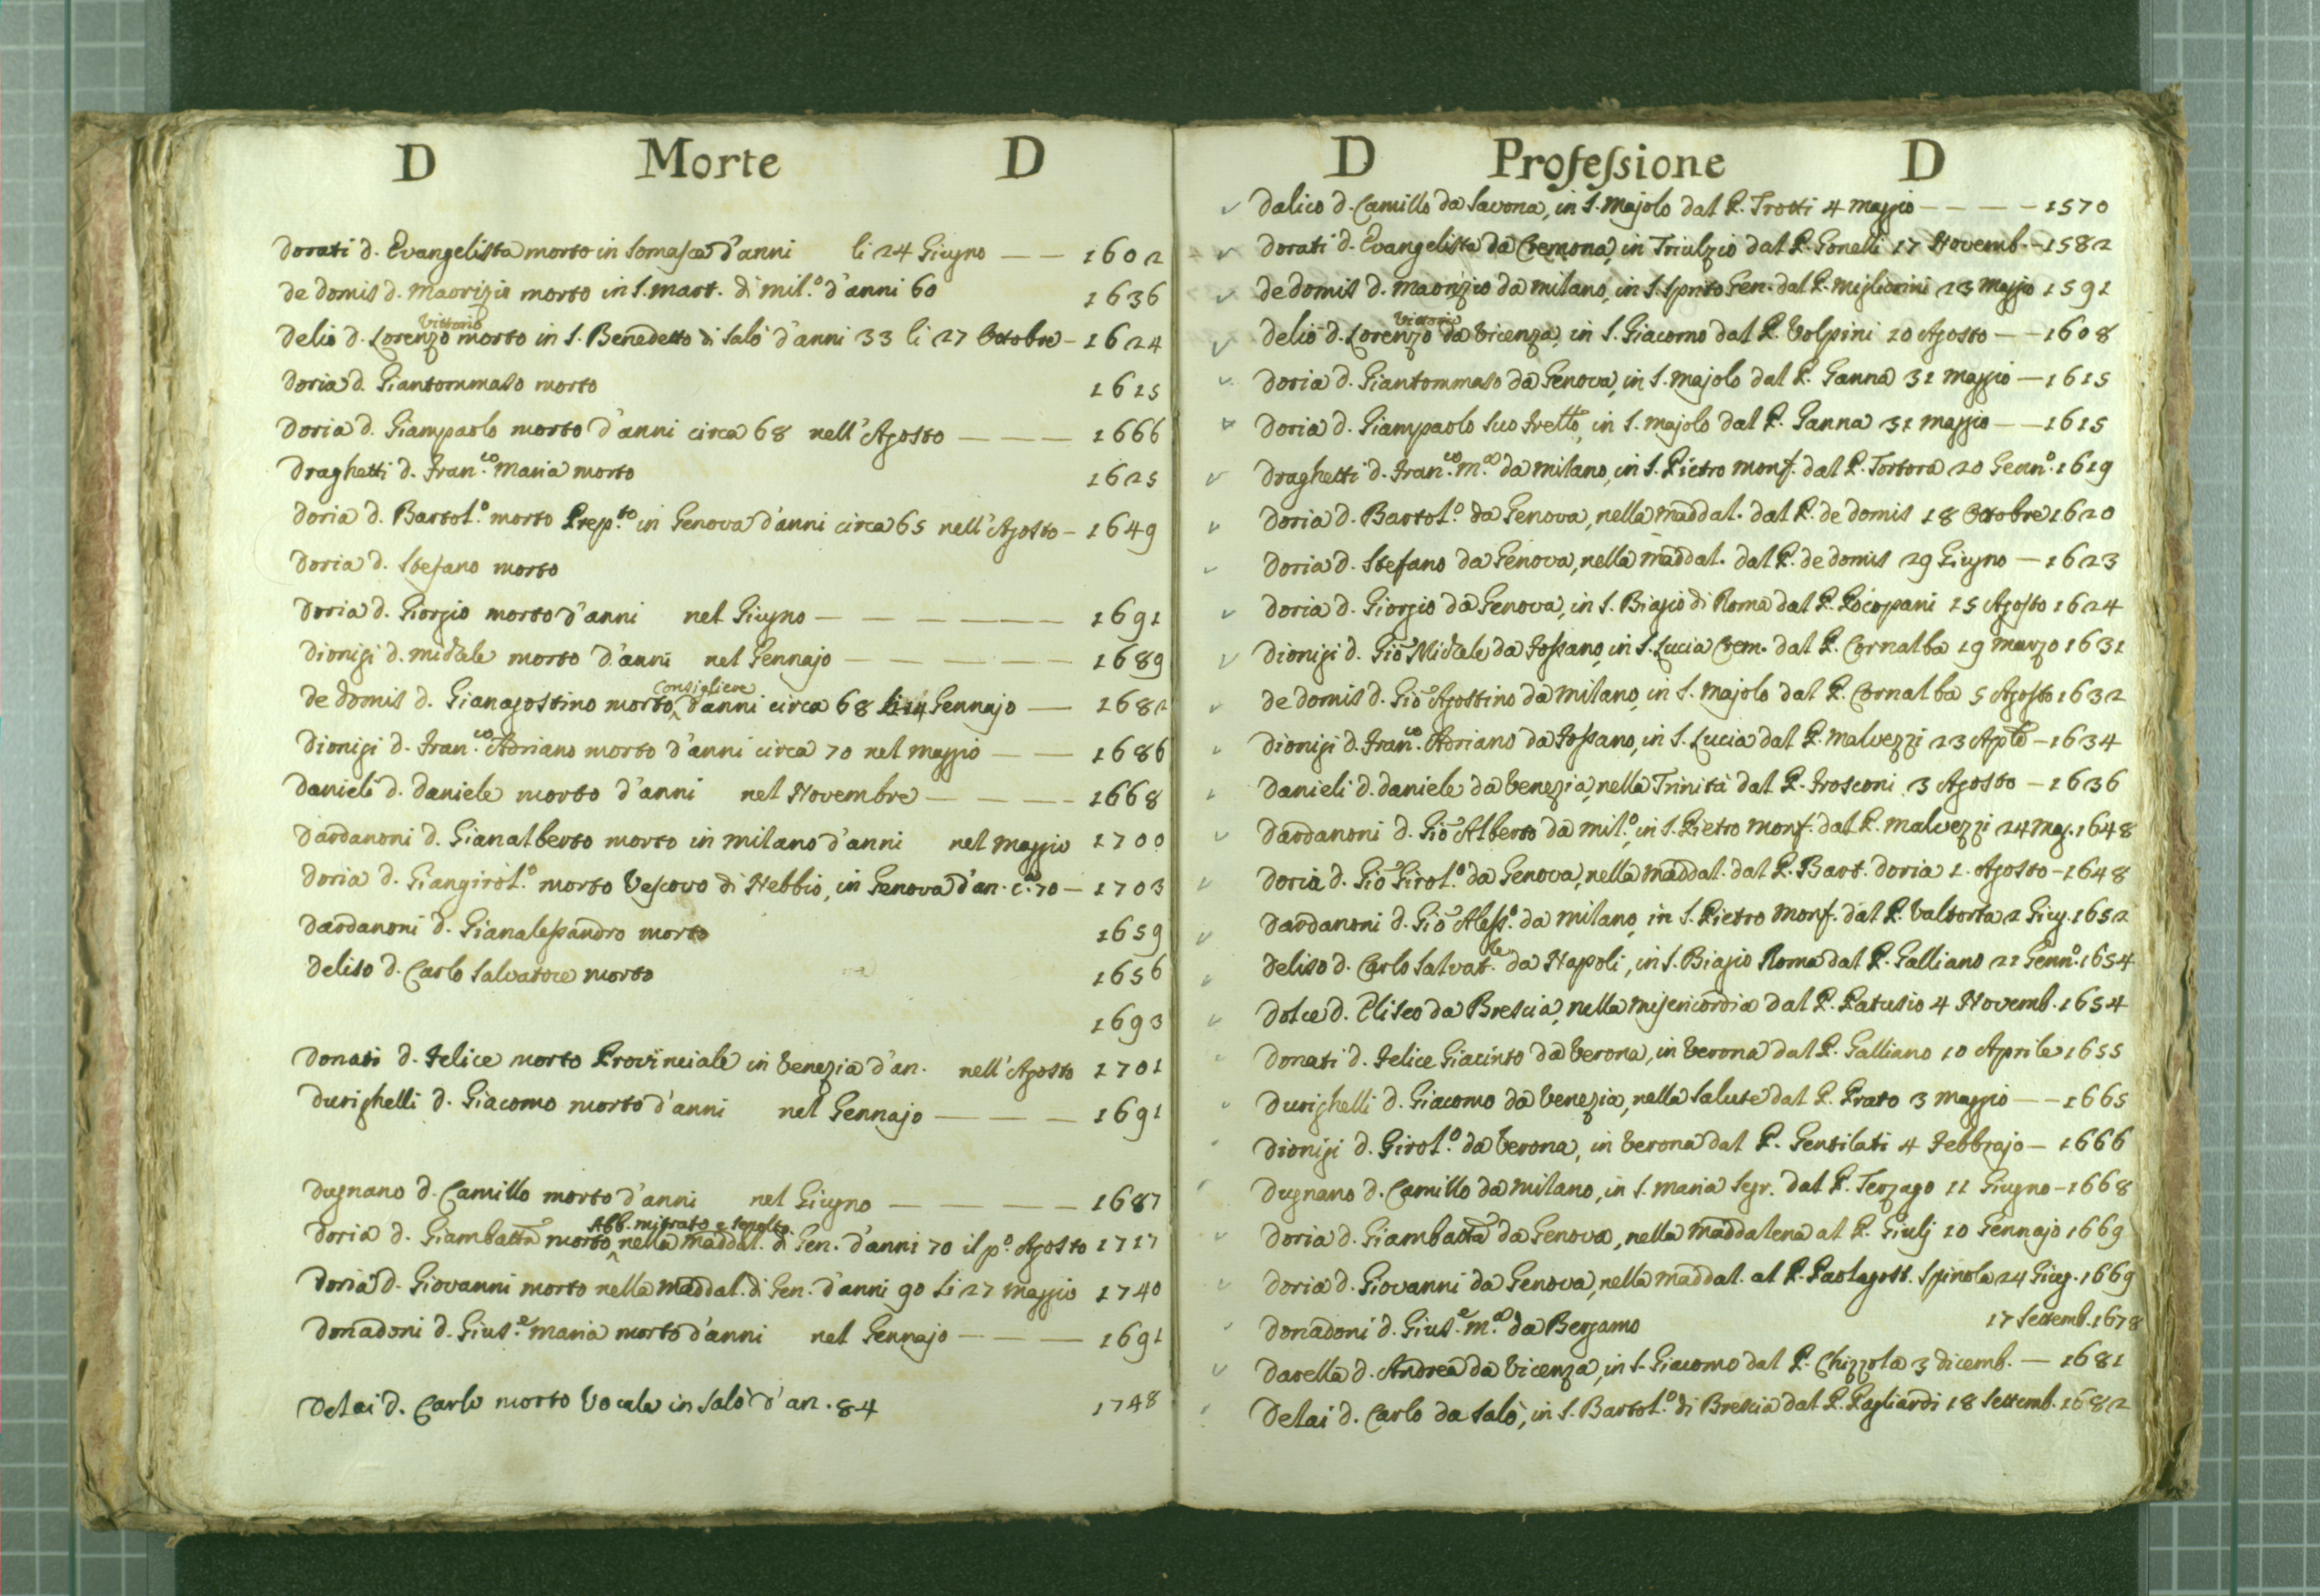 D Morte D
Dorati d. Evangelista morto in Somasca d'anni li 24 Giugno — — 1602
de Domis d. Maorizio morto in S. Mart. di Mil.º d'anni 60 1636
Vittorio
Delio d. Lorenzo morto in S. Benedetto di Salò d'anni 33 li 27 Ottobre - 1624
Doria d. Giantommaso morto 1625
Doria d. Giampaolo morto d'anni circa 68 nell'Agosto — — — 1666
Draghetti d. Fran.co Maria morto 1625
Doria d. Bartol.º morto Prep.to in Genova d'anni circa 65 nell'Agosto - 1649
Doria d. Stefano morto
Doria d. Giorgio morto d'anni nel Giugno — — — — — — 1691
Dionigi d. Michele morto d'anni nel Gennajo — — — — — — 1689
Consigliere
de Domis d. Gianagostino morto ^ d'anni circa 68 li 14 Gennajo — 1682
Dionigi d. Fran.co Adriano morto d'anni circa 70 nel Maggio — — 1686
Danieli d. Daniele morto d'anni nel Novembre — — — — 1668
Dardanoni d. Gianalberto morto in Milano d'anni nel Maggio 1700
Doria d. Giangirol.º morto Vescovo di Nebbio, in Genova d'an. c.ª 70 — 1703
Dardanoni d. Gianalessandro morto 1659
Deliso d. Carlo Salvatore morto 1656
1693
Donati d. Felice morto Provinciale in Venezia d'an. nell'Agosto 1701
Durighelli d. Giacomo morto d'anni nel Gennajo — — — 1691
Dugnano d. Camillo morto d'anni nel Giugno — — — — 1687
Abb. mitrato e sepolto
Doria d. Giambatta morto ^ nella Maddal. di Gen. d'anni 70 il p.º Agosto 1717
Doria d. Giovanni morto nella Maddal. di Gen. d'anni 90 li 27 Maggio 1740
Donadoni d. Gius.e Maria morto d'anni nel Gennajo — — — 1691
Delai d. Carlo morto Vocale in Salò d'an. 84 1748
D Professione D
Dalico d. Camillo da Savona, in S. Majolo dal P. Trotti 4 Maggio — — — — 1570
Dorati d. Evangelista da Cremona, in Triulzio dal P. Gonelli 17 Novemb. - 1582
de Domis d. Maorizio da Milano, in S. Spirito Gen. dal P. Migliorini 23 Maggio 1591
Vittorio
Delio d. Lorenzo da Vicenza, in S. Giacomo dal P. Volpini 20 Agosto — — 1608
Doria d. Giantommaso da Genova, in S. Majolo dal P. Ganna 31 Maggio — 1615
Doria d. Giampaolo suo Fretto, in S. Majolo dal P. Ganna 31 Maggio — — 1615
Draghetti d. Fran.co M.ª da Milano, in S. Pietro Monf. dal P. Tortora 20 Genn.º 1619
Doria d. Bartol.º da Genova, nella Maddal. dal P. de Domis 18 Ottobre 1620
Doria d. Stefano da Genova, nella Maddal. dal P. de Domis 29 Giugno — 1623
Doria d. Giorgio da Genova, in S. Biagio di Roma dal P. Pocopani 15 Agosto 1624
Dionigi d. Gio Michele da Fossano, in S. Lucia Crem. dal P. Cornalba 19 Marzo 1631
de Domis d. Gio Agostino da Milano, in S. Majolo dal P. Cornalba 5 Agosto 1632
Dionigi d. Fran.co Adriano da Fossano, in S. Lucia dal P. Malvezzi 23 Aple — 1634
Danieli d. Daniele da Venezia, nella Trinità dal P. Frosconi 3 Agosto — 1636
Dardanoni d. Gio Alberto da Mil.º, in S. Pietro Monf. dal P. Malvezzi 24 Mag. 1648
Doria d. Gio Girol.º da Genova, nella Maddal. dal P. Bart. Doria 1. Agosto - 1648
Dardanoni d. Gio Aless.º da Milano, in S. Pietro Monf. dal P. Valtorta 2 Giug. 1652
Deliso d. Carlo Salvat.re da Napoli, in S. Biagio Roma dal P. Galliano 21 Genn.º 1654
Dolce d. Eliseo da Brescia, nella Misericordia dal P. Patusio 4 Novemb. 1654
Donati d. Felice Giacinto da Verona, in Verona dal P. Galliano 10 Aprile 1655
Durighelli d. Giacomo da Venezia, nella Salute dal P. Prato 3 Maggio — — 1665
Dionigi d. Girol.º da Verona, in Verona dal P. Gentilati 4 Febbrajo — 1666
Dugnano d. Camillo da Milano, in S. Maria Segr. dal P. Terzago 11 Giugno - 1668
Doria d. Giambatta da Genova, nella Maddalena al P. Giulj 10 Gennajo 1669
Doria d. Giovanni da Genova, nella Maddal. al P. Paolagost. Spinola 24 Giug. 1669
Donadoni d. Gius.e M.ª da Bergamo 17 Settemb. 1678
Darella d. Andrea da Vicenza, in S. Giacomo dal P. Chizzola 3 Dicemb. — 1681
Delai d. Carlo da Salò, in S. Bartol.º di Brescia dal P. Pagliardi 18 Settemb. 1682